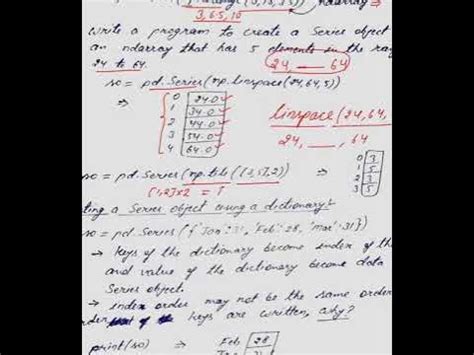 3, 6.5, 10
ndarray
write a program to create a Series object
an ndarray that has 5 elements in the ran
24 to 64. 24, __ 64
so = pd.Series(np.linspace(24,64,5))
⇒ 0 24.0
1 34.0
2 44.0
3 54.0
4 64.0
linspace(24,64,
24, __, 64
so = pd.Series(np.tile([3,5],2))
⇒ 0 3
1 5
2 3
3 5
[1,2]*2 =
ting a Series object using a dictionary?
so = pd.Series({'Jan':31, 'Feb':28, 'Mar':31})
→ keys of the dictionary become index of the
and value of the dictionary become data
Series object.
→ index order may not be the same order
order of the keys are written, why?
print(so) ⇒ Feb 28
Jan 31